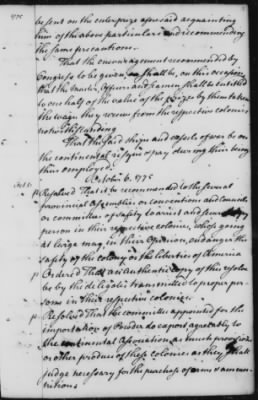 1775
be sent on the enterprize aforesaid acquainting
him of the above particulars and recommending
the same precautions.
That the encouragement recommended by
Congress to be given, shall be, on this occasion
that the Master, Officers and Seamen shall be entitled
to one half of the value of the Prizes by them taken
the wages they receive from the respective colonies
notwithstanding
That the said ships and vessels of war be on
the continental risque & pay during their being
thus employed.
October 6. 1775
Resolved That it be recommended to the several
provincial Assemblies or conventions and councils
or committees of safety to arrest and secure every
person in their respective colonies, whose going
at large may, in their opinion, endanger the
safety of the colony or the liberties of America
Ordered That an authentic copy of this resolve
be by the delegates transmitted to proper per
sons in their respective colonies.
Resolved That the committee appointed for the
importation of Powder do export agreeably to
the continental Association as much provision
or other produce of these colonies as they shall
judge necessary for the purchase of arms & ammu
nitions